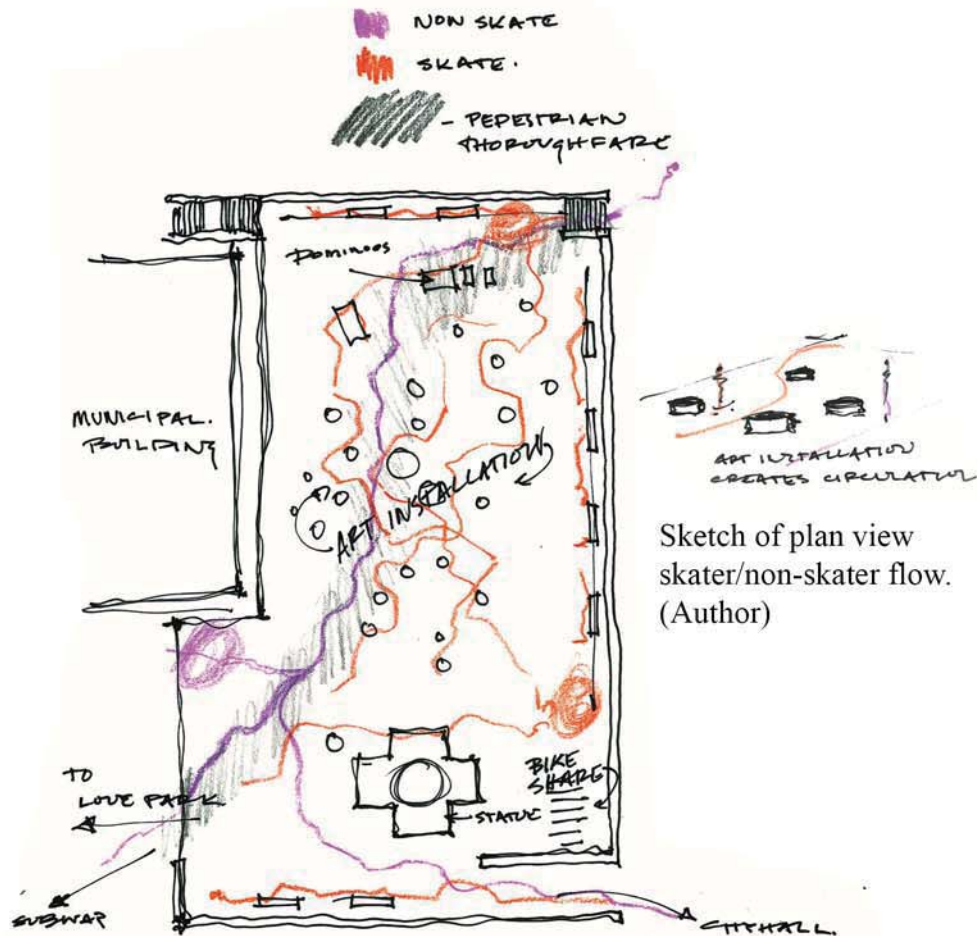 NON SKATE
SKATE.
- PEDESTRIAN
THOROUGHFARE
DOMINOOS
MUNICIPAL.
BUILDING
ART INSTALLATION
ART INSTALLATION
CREATES CIRCULATION
Sketch of plan view
skater/non-skater flow.
(Author)
TO
LOVE PARK
BIKE
SHARE
STATUE
SUBWAY
CITYHALL.